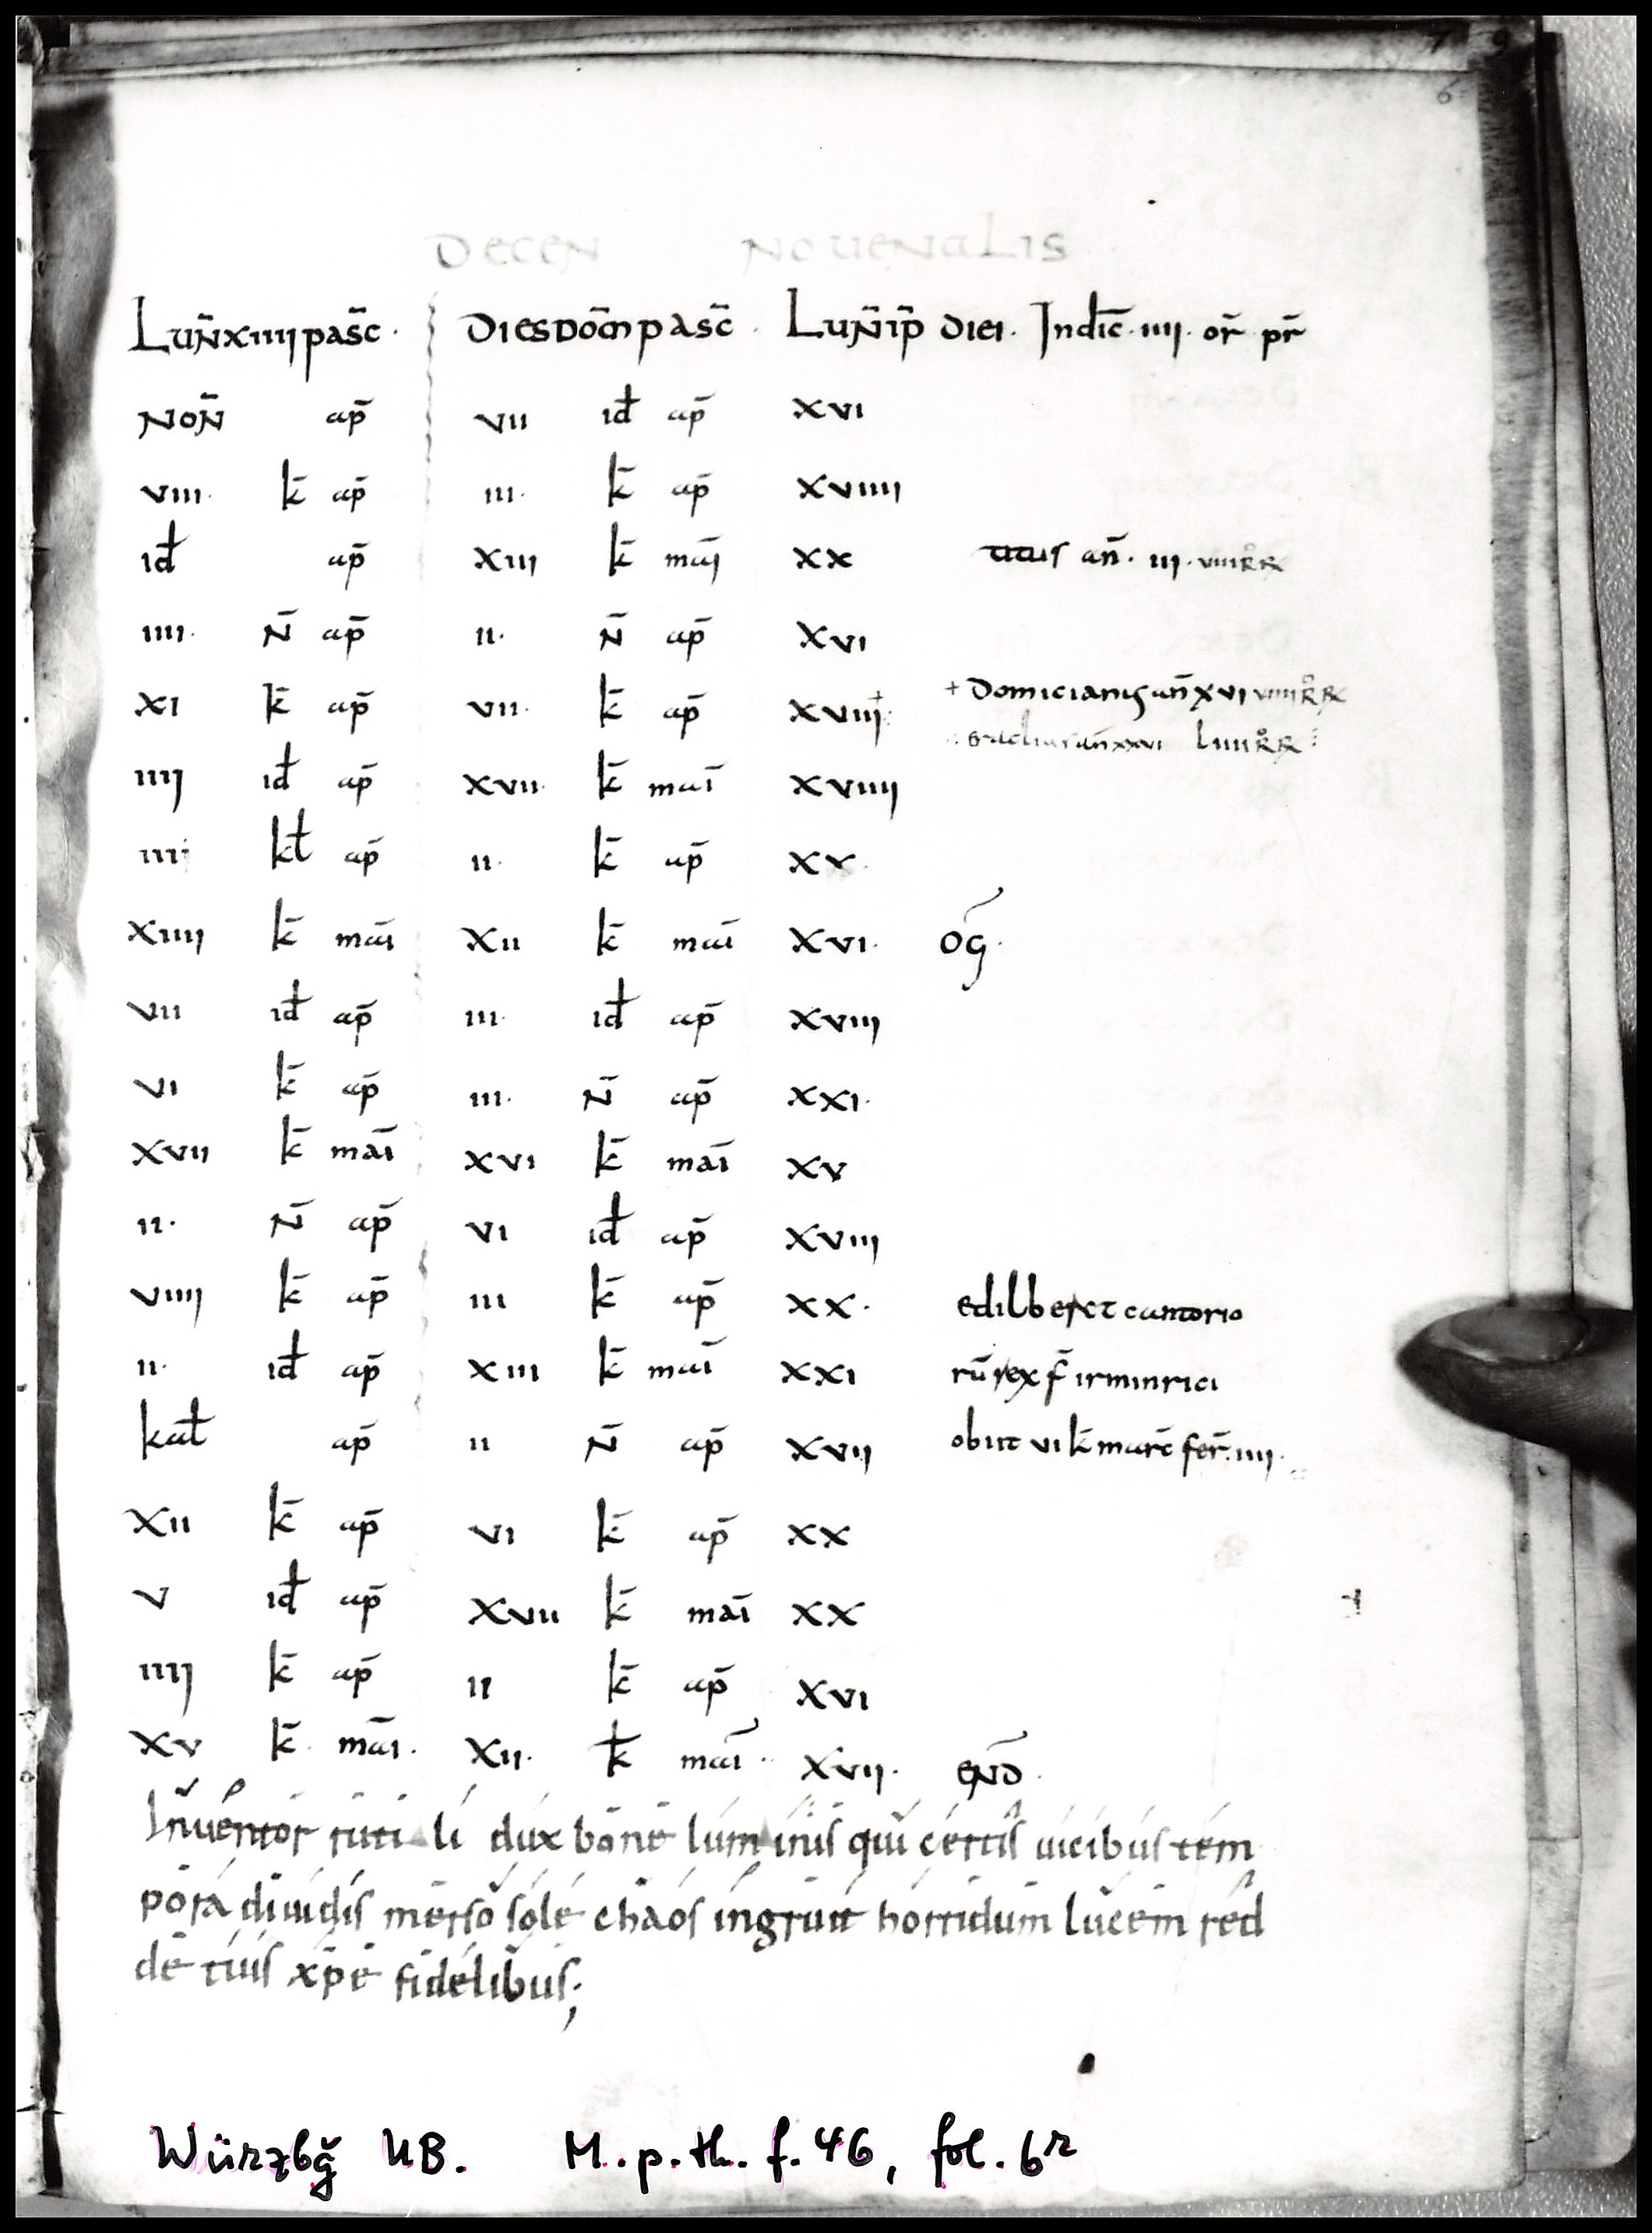 6
DECEN NOVENALIS
Lun̄ xiiii pasc̄ · Dies dom̄ pasc̄ · Lun̄ ip̄ diei · Indic̄ · iiii · or̄ pr̄
Non̄ ap̄ vii id ap̄ xvi
viii · k̄ ap̄ iii · k̄ ap̄ xviiii
id ap̄ xiii k̄ mai xx titus an̄ · iii · viiii
iiii · n̄ ap̄ ii · n̄ ap̄ xvi
xi k̄ ap̄ vii · k̄ ap̄ xviii + + Domicianus an̄ xvi viiii
iiii id ap̄ xvii · k̄ mai xviiii
iiii kł ap̄ ii · k̄ ap̄ xx ·
xiiii k̄ mai xii k̄ mai xvi · oḡ ·
vii id ap̄ iii · id ap̄ xviii
vi k̄ ap̄ iii · n̄ ap̄ xxi ·
xvii k̄ mai xvi k̄ mai xv
ii · n̄ ap̄ vi id ap̄ xviii
viiii k̄ ap̄ iii k̄ ap̄ xx · edilberct cantorio
ii · id ap̄ xiii k̄ mai xxi rū rex f̄ irminrici
kał ap̄ ii n̄ ap̄ xvii obiit vi k̄ marc̄ fer̄ · iiii ·
xii k̄ ap̄ vi k̄ ap̄ xx
v id ap̄ xvii k̄ mai xx
iiii k̄ ap̄ ii k̄ ap̄ xvi
xv k̄ · mai · xii · k̄ mai · xvii · end̄ ·
Inventor rutili dux bone luminis qui certis uicibus tem
pora diuidis merso sole chaos ingruit horridum lucem red
de tuis xp̄e fidelibus;
Würzbg̃ UB. M.p.th.f.46, fol.6r